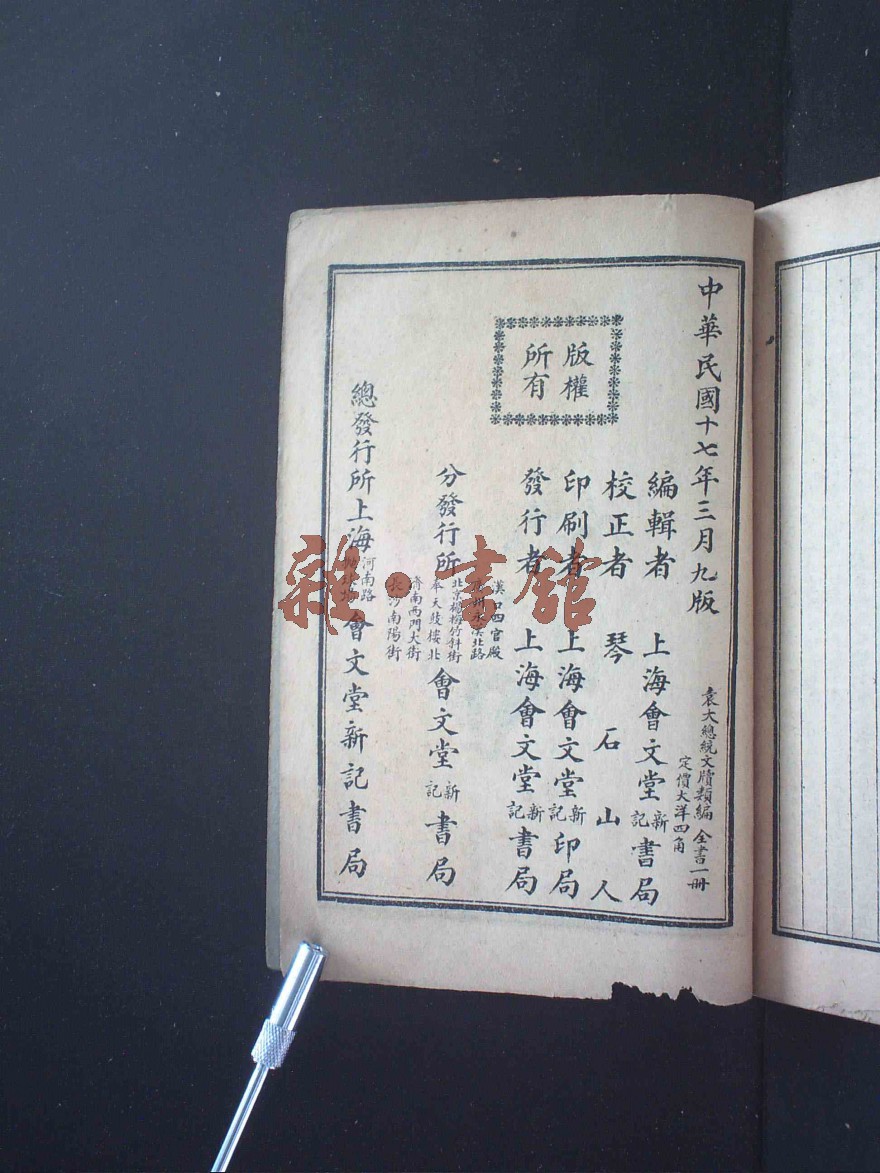 中華民國十七年三月九版
袁大總統文牘類編 全書一冊
定價大洋四角
版權
所有
編輯者 上海會文堂新記書局
校正者 琴石山人
印刷者 上海會文堂新記印局
發行者 上海會文堂新記書局
分發行所
漢口四官殿
北路
北京楊梅竹斜街
奉天鼓樓北
濟南西門大街
長沙南陽街
會文堂新記書局
總發行所上海
河南路
會文堂新記書局
雜·書館